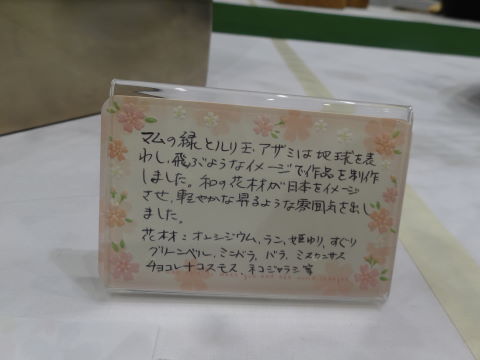 マムの緑とルリ玉アザミは地球を表
わし、飛ぶようなイメージで作品を制作
しました。和の花材が日本をイメージ
させ、軽やかな昇るような雰囲気を出し
ました。
花材：オンシジウム、ラン、姫ゆり、すぐり
グリーンベル、ミニバラ、バラ、ミスカンサス
チョコレートコスモス、ネコジャラシ等